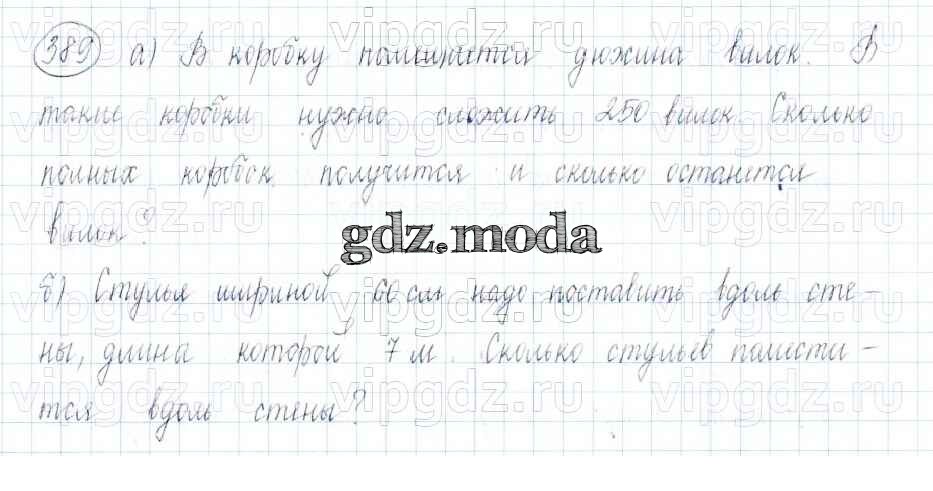 389 а) В коробку помещается дюжина вилок. В
такие коробки нужно сложить 250 вилок. Сколько
полных коробок получится и сколько останется
вилок?
gdz.moda
б) Стулья шириной 60 см надо поставить вдоль сте-
ны, длина которой 7 м. Сколько стульев помести-
тся вдоль стены?
vipgdz.ru